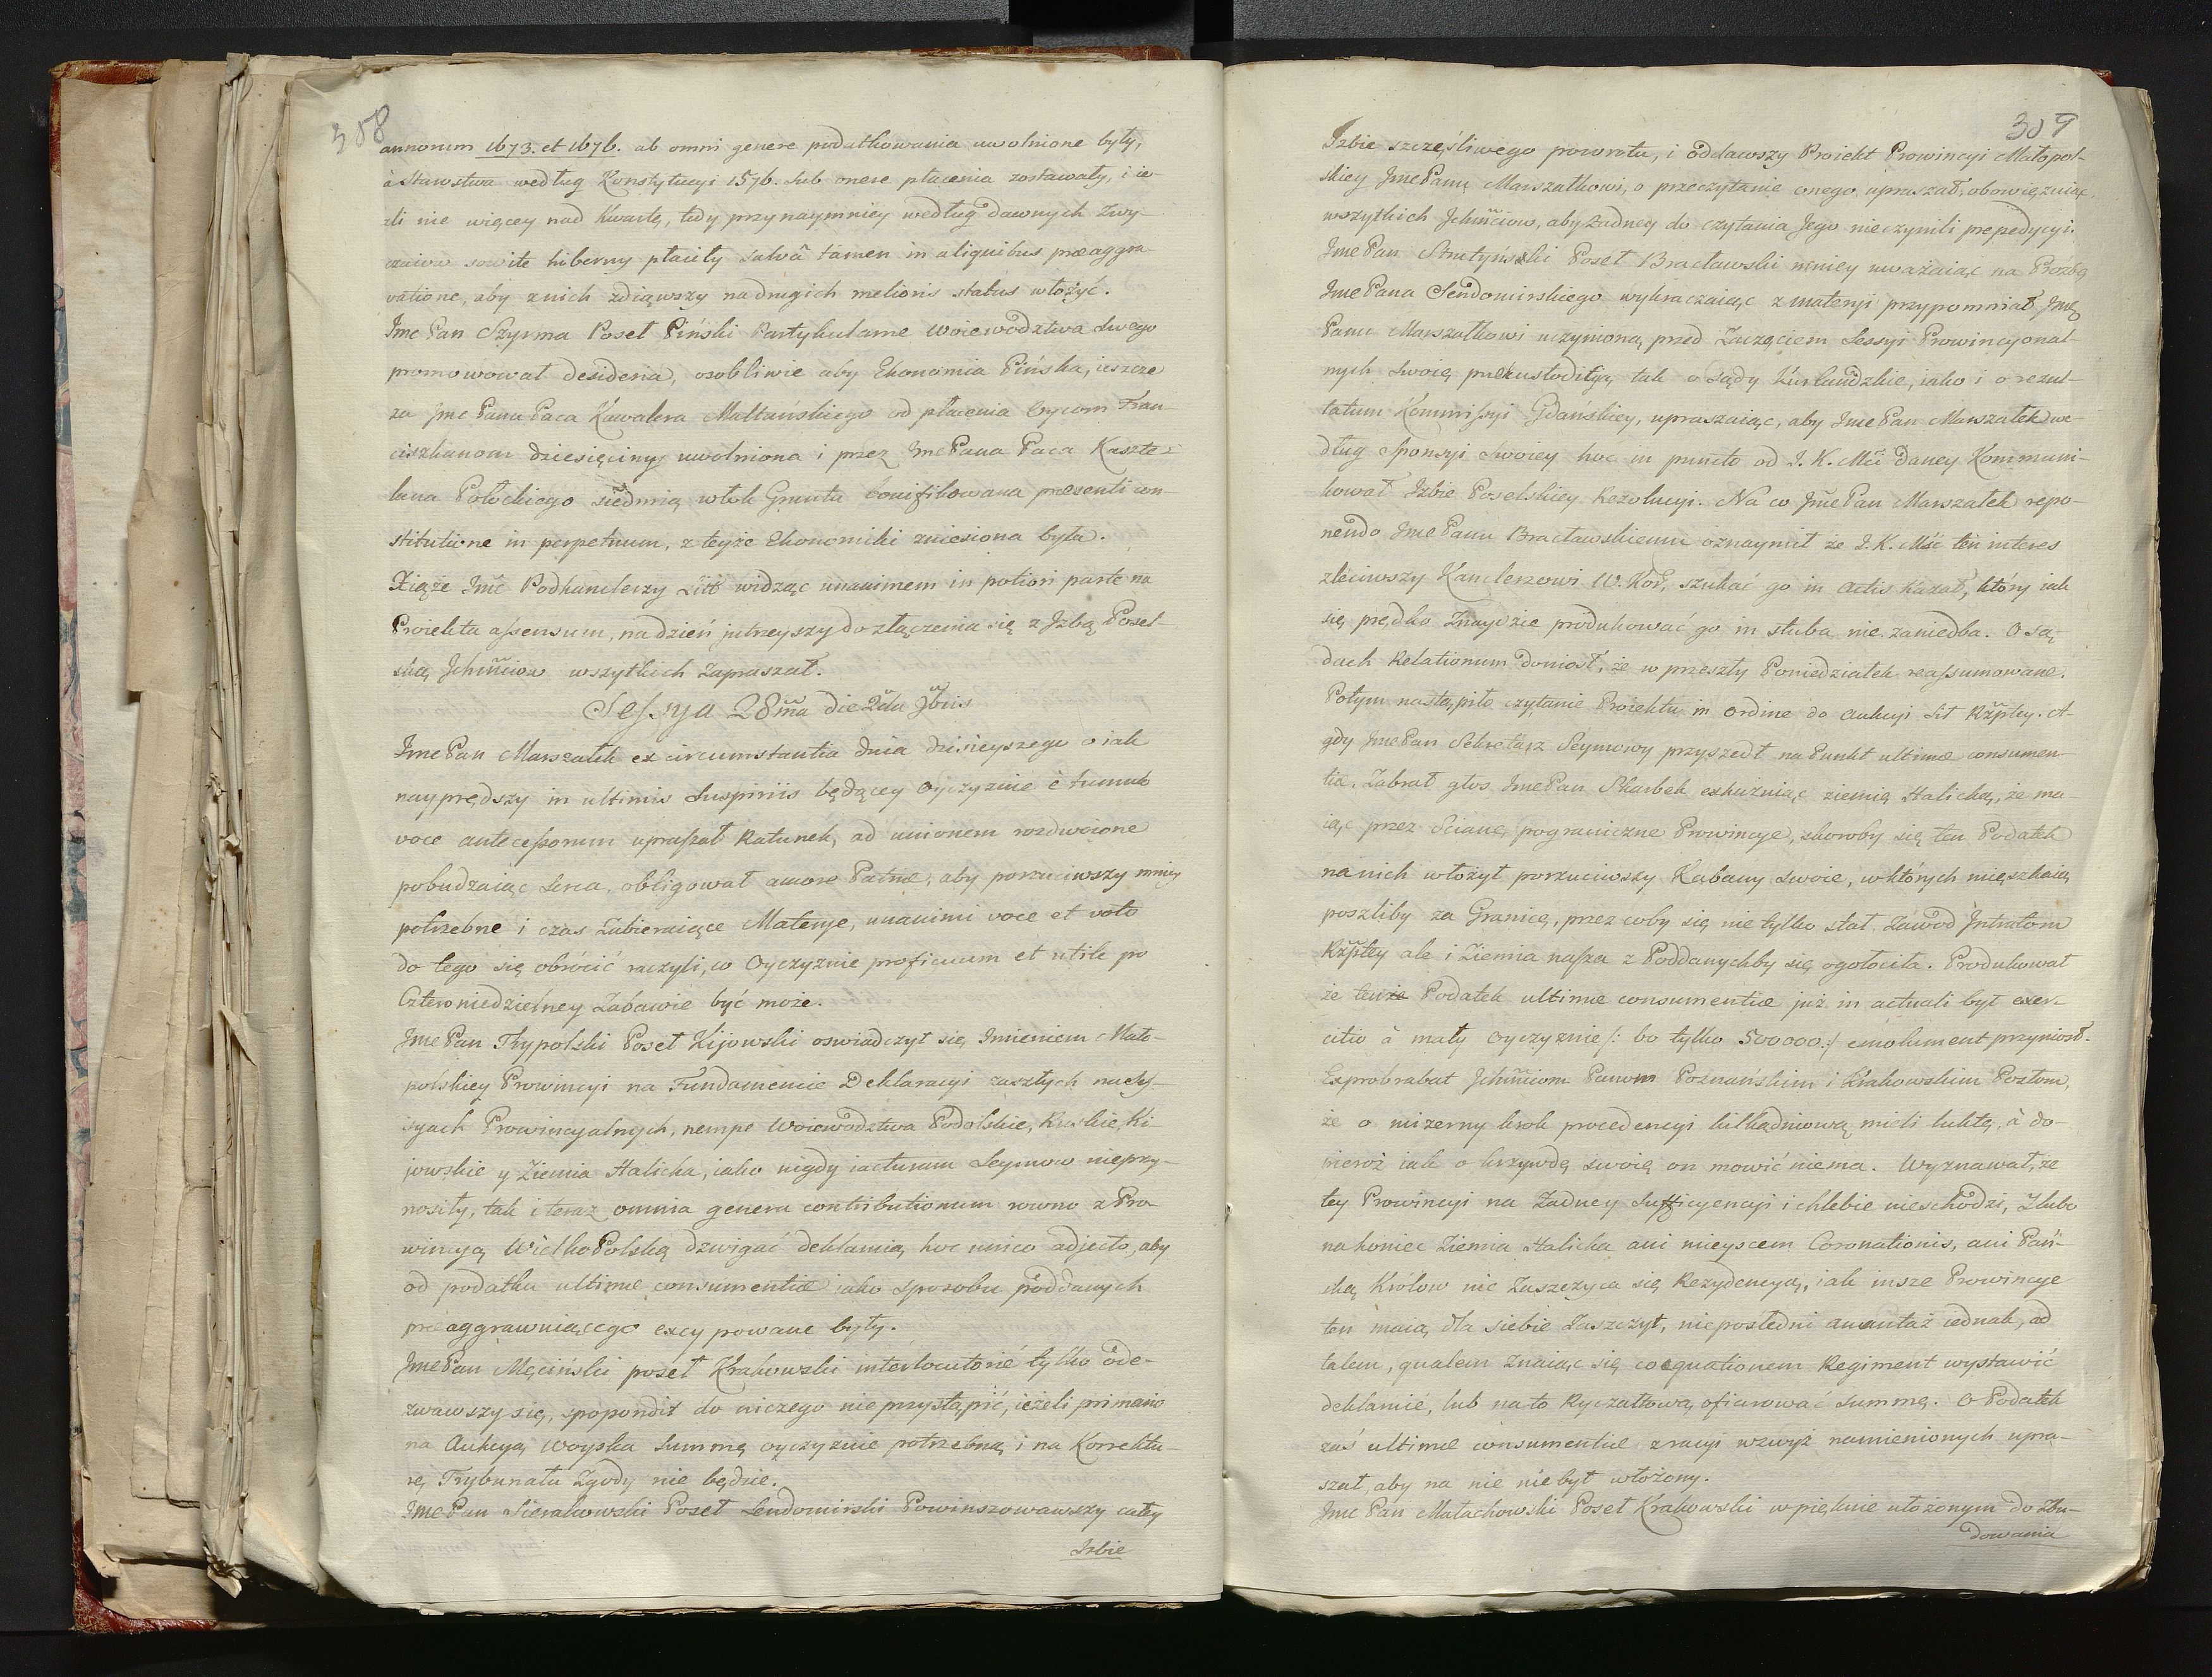 358
annorum 1673. et 1676. ab omni genere podatkowania uwolnione były,
à Starostwa według Konstytucyi 1576. sub onere płacenia zostawały, i ie-
zli nie więcey nad Kwartę, tedy przynaymniey według dawnych zwy-
czaiow sowite hiberny płaciły salvâ tamen in aliquibus præaggra-
vatione, aby z nich zdiąwszy na drugich melioris status włożyć.
Jmc Pan Szyrma Poseł Piński Partykularne Woiewodztwa swego
promowował desideria, osobliwie aby Ekonomia Pińska, ieszcze
za Jmc Pana Paca Kawalera Maltańskiego od płacenia Oycom Fran-
ciszkanom dziesięciny uwolniona i przez Jmc Pana Paca Kaszte-
lana Połockiego siedmią włok Gruntu bonifikowana præsenti con-
stitutione in perpetuum, z teyże Ekonomiki zniesiona była.
Xiąże Jmć Podkanclerzy Litt widząc unanimem in potiori parte na
Proiekta assensum, na dzień jutrzeyszy do złączenia się z Izbą Posel-
ską Jchmciow wszytkich zapraszał.
Sessya 28ma die 2da 9bris
Jmc Pan Marszałek ex circumstantia dnia dzisieyszego o iak
nayprędszy in ultimis suspiriis będącey Oyczyznie è tumulo
voce antecessorum upraszał Ratunek, ad unionem rozdwoione
pobudzaiąc serca, obligował amore Patriæ, aby porzuciwszy mniey
potrzebne i czas zabieraiące Materye, unanimi voce et voto
do tego się obrócić raczyli, co Oyczyznie proficuum et utile po
Czteroniedzielney Zabawie być może.
Jmc Pan Trypolski Poseł Kijowski oswiadczył się Imieniem Mało-
polskiey Prowincyi na Fundamencie Deklaracyi zaszłych na Ses-
syach Prowincyalnych, nempe Woiewodztwa Podolskie, Ruskie, Ki-
jowskie y Ziemia Halicka, iako nigdy iacturam Seymow nieprzy-
nosiły, tak i teraz omnia genera contributionum rowno z Pro-
wincyą WielkoPolską dzwigać deklaruią, hoc unico adjecto, aby
od podatku ultimæ consumentiæ iako sposobu poddanych
præaggrawuiącego excypowane były.
Jmc Pan Męciński poseł Krakowski interlocutorié tylko ode-
zwawszy się, spopondit do niczego nieprzystąpić, ieżeli primario
na Aukcyą Woyska summę oyczyznie potrzebną i na Korrektu-
rę Trybunału Zgody nie będzie.
Jmc Pan Sierakowski Poseł Sendomirski Powinszowawszy całey
Izbie
359
Izbie szczęśliwego powrotu, i oddawszy Proiekt Prowincyi Małopol-
skiey Jmc Panu Marszałkowi, o przeczytanie onego upraszał, obowięzuiąc
wszytkich Jchmciow, aby żadney do czytania Jego nieczynili prepedycyi.
Jmc Pan Strutyński Poseł Bracławski mniey uważaiąc na Prozbę
Jmc Pana Sendomirskiego wykraczaiąc z materyi przypomniał Jmć
Panu Marszałkowi uczynioną przed Zaczęciem Sessyi Prowincyonal-
nych swoię prekustodityą tak o sądy Kurlandzkie, iako i o rezul-
tatum Kommissyi Gdanskiey, upraszaiąc, aby Jmc Pan Marszałek we-
dług sponsyi swoiey hoc in puncto od J. K. Mci Daney Kommuni-
kował Izbie Poselskiey Rezolucyi. Na co Jmc Pan Marszałek repo-
nendo Jmc Panu Bracławskiemu oznaymił że J. K. Mść ten interes
zleciwszy Kanclerzowi W. Kor. szukać go in Actis kazał, który iak
się prędko Znaydzie produkować go in stuba nie zaniedba. O są-
dach Relationum doniosł, że w przeszły Poniedziałek reassumowane.
Potym nastąpiło czytanie Proiektu in ordine do aukcyi Sił Rzptey. A
gdy Jmc Pan Sekretarz Seymowy przyszedł na Punkt ultimæ consumen-
tiæ, Zabrał głos Jmc Pan Skarbek exkuzuiąc ziemię Halicką, że ma-
iąc przez Scianę pograniczne Prowincye, skoroby się ten Podatek
na nich włożył porzuciwszy Kabany swoie, w których mięszkaią
poszliby za Granicę, przez coby się nie tylko stał Zawod Intratom
Rzptey ale i Ziemia nasza z Poddanychby się ogołociła. Produkował
że tenże Podatek ultimæ consumentiæ już in actuali był exer-
citio à mały oyczyznie /: bo tylko 500000:/ emolument przyniosł.
Exprobrabat Jchmciom Panom Poznańskim i Krakowskim Posłom,
że o mizerny krok procedencyi kilkądniową mieli luktę, à do-
pieroż iak o krzywdę swoię on mowić niema. Wyznawał, że
tey Prowincyi na Zadney Sufficyencyi i chlebie nieschodzi, I lubo
nakoniec Ziemia Halicka ani mieyscem Coronationis, ani Pań-
ską Krolow nie Zaszczyca się Rezydencyą, iak insze Prowincye
ten maią dla siebie Zaszczyt, nieposledni awantaż iednak, ad
talem, qualem Znaiąc się coæquationem Regiment wystawić
deklaruie, lub na to Ryczałtową ofiarować summę. O Podatek
zaś ultimæ consumentiæ z racyi wzwyż namienionych upra-
szał, aby na nie niebył włożony.
Jmc Pan Małachowski Poseł Krakowski w pięknie ułożonym do Zbu-
dowania